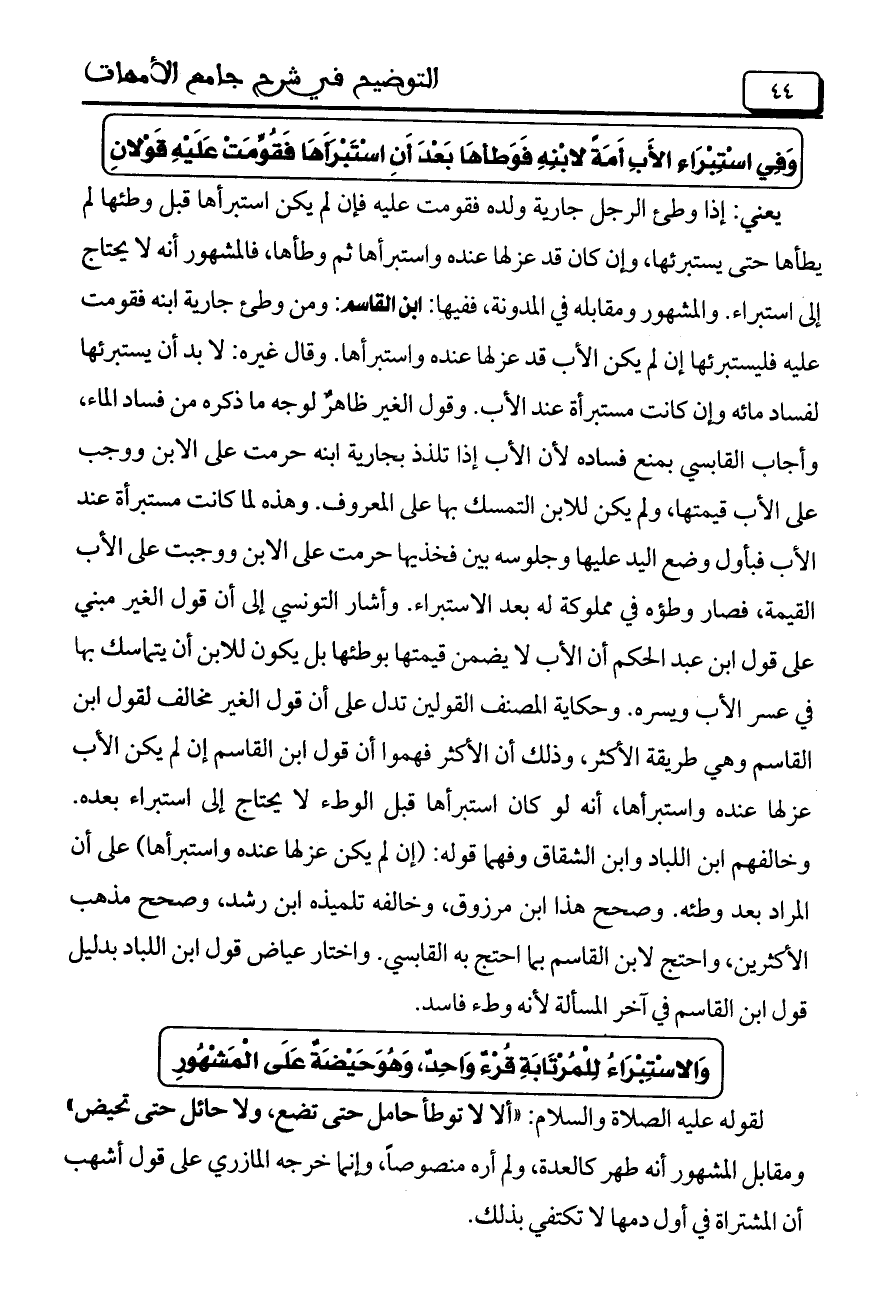 ٤٤
التوضيح في شرح جامع الأمهات
وَفِي اسْتِبْرَاءِ الأَبِ أَمَةً لابْنِهِ فَوَطأهَا بَعْدَ أَنِ اسْتَبْرَأَهَا فَقُوِّمَتْ عَلَيْهِ قَوْلانِ
يعني: إذا وطئ الرجل جارية ولده فقومت عليه فإن لم يكن استبرأها قبل وطئها لم
يطأها حتى يستبرئها، وإن كان قد عزلها عنده واستبرأها ثم وطأها، فالمشهور أنه لا يحتاج
إلى استبراء. والمشهور ومقابله في المدونة، ففيها: ابن القاسم: ومن وطئ جارية ابنه فقومت
عليه فليستبرئها إن لم يكن الأب قد عزلها عنده واستبرأها. وقال غيره: لا بد أن يستبرئها
لفساد مائه وإن كانت مستبرأة عند الأب. وقول الغير ظاهرٌ لوجه ما ذكره من فساد الماء،
وأجاب القابسي بمنع فساده لأن الأب إذا تلذذ بجارية ابنه حرمت على الابن ووجب
على الأب قيمتها، ولم يكن للابن التمسك بها على المعروف. وهذه لما كانت مستبرأة عند
الأب فبأول وضع اليد عليها وجلوسه بين فخذيها حرمت على الابن ووجبت على الأب
القيمة، فصار وطؤه في مملوكة له بعد الاستبراء. وأشار التونسي إلى أن قول الغير مبني
على قول ابن عبد الحكم أن الأب لا يضمن قيمتها بوطئها بل يكون للابن أن يتماسك بها
في عسر الأب ويسره. وحكاية المصنف القولين تدل على أن قول الغير مخالف لقول ابن
القاسم وهي طريقة الأكثر، وذلك أن الأكثر فهموا أن قول ابن القاسم إن لم يكن الأب
عزلها عنده واستبرأها، أنه لو كان استبرأها قبل الوطء لا يحتاج إلى استبراء بعده.
وخالفهم ابن اللباد وابن الشقاق وفهما قوله: (إن لم يكن عزلها عنده واستبرأها) على أن
المراد بعد وطئه. وصحح هذا ابن مرزوق، وخالفه تلميذه ابن رشد، وصحح مذهب
الأكثرين، واحتج لابن القاسم بما احتج به القابسي. واختار عياض قول ابن اللباد بدليل
قول ابن القاسم في آخر المسألة لأنه وطء فاسد.
وَالاسْتِبْرَاءُ لِلْمُرْتَابَةِ قُرْءٌ وَاحِدٌ، وَهُوَ حَيْضَةٌ عَلَى الْمَشْهُورِ
لقوله عليه الصلاة والسلام: «ألا لا توطأ حامل حتى تضع، ولا حائل حتى تحيض»
ومقابل المشهور أنه طهر كالعدة، ولم أره منصوصاً، وإنما خرجه المازري على قول أشهب
أن المشتراة في أول دمها لا تكتفي بذلك.